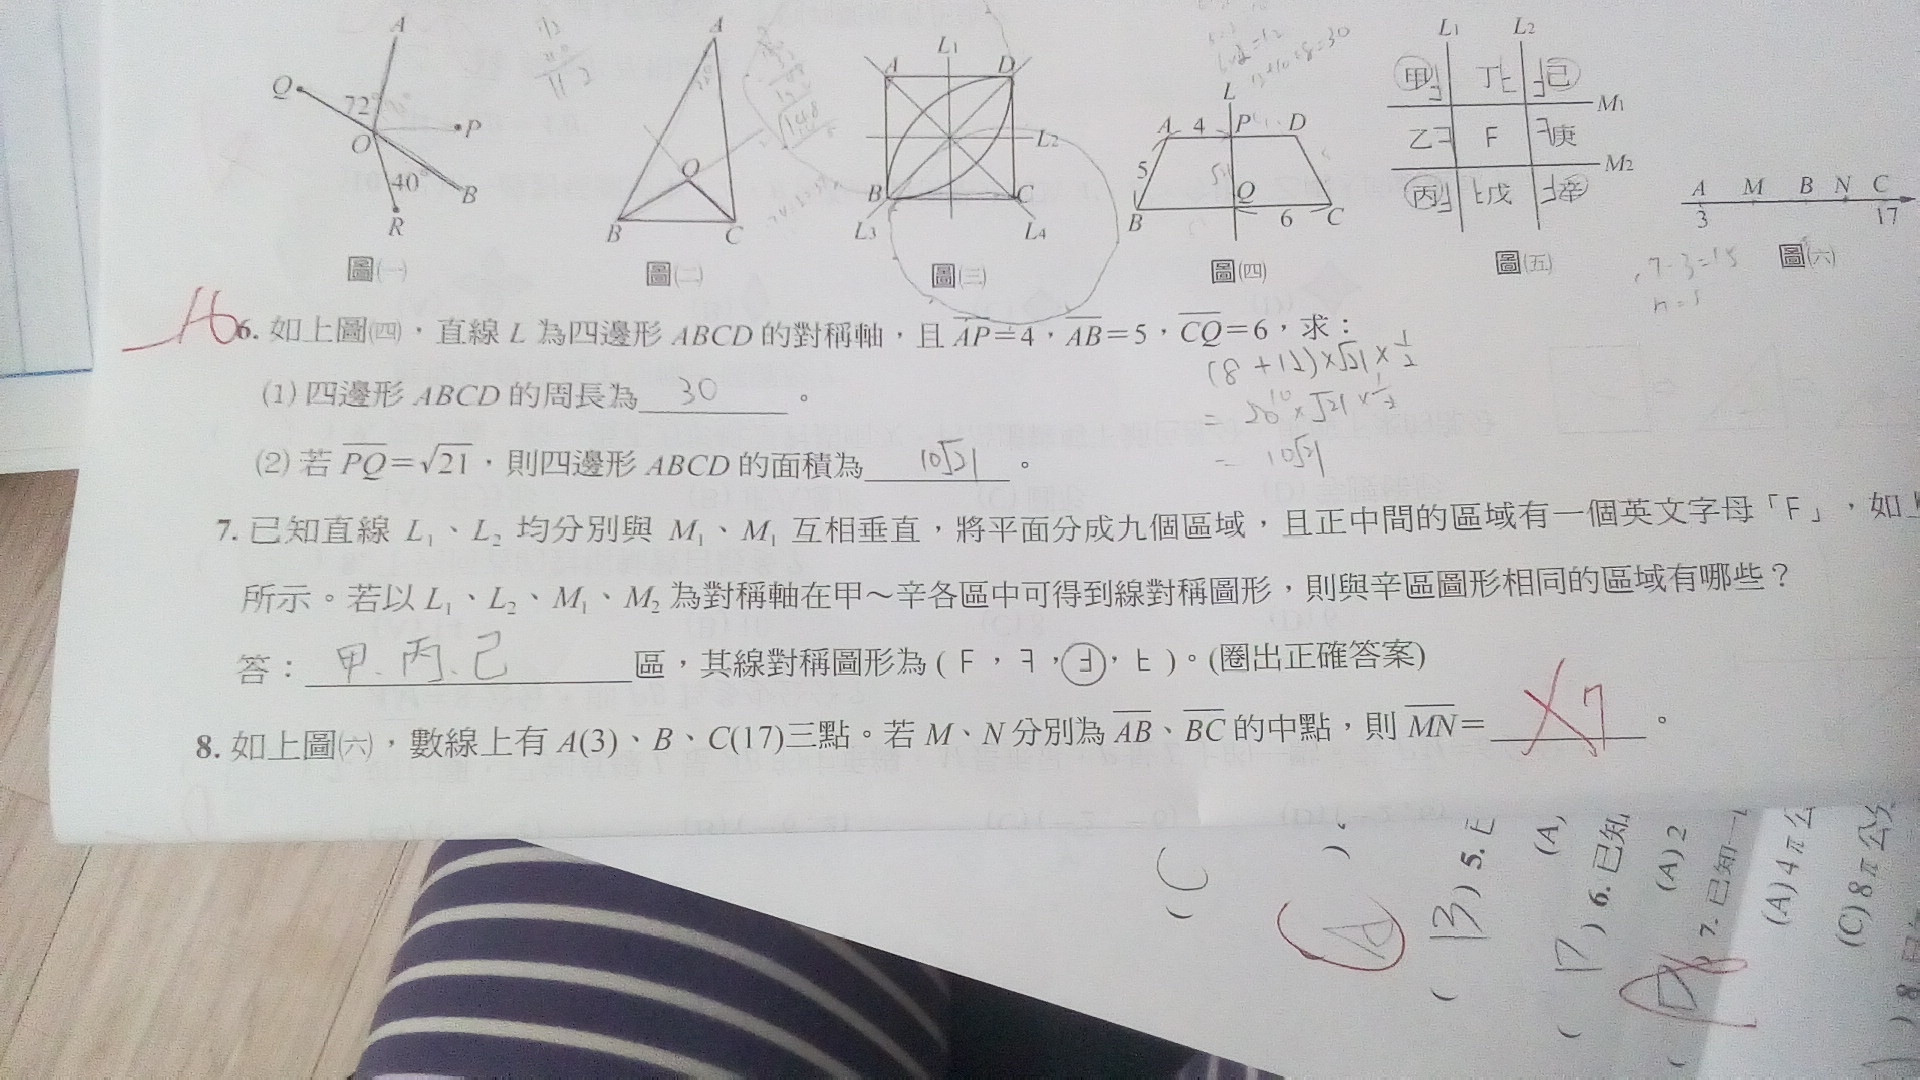 A
Q
72°
P
O
40°
B
R
圖(一)
A
O
B
C
圖(二)
L1
A
D
L2
B
C
L3
L4
圖(三)
L
A 4 P D
5
Q
B
6 C
圖(四)
L1 L2
甲 丁 己
M1
乙 F 庚
M2
丙 戊 辛
圖(五)
A M B N C
3 17
圖(六)
6. 如上圖(四),直線 L 為四邊形 ABCD 的對稱軸,且 AP=4,AB=5,CQ=6,求:
(8+12)×√21×1/2
(1) 四邊形 ABCD 的周長為 30 。
= 20×√21×1/2
(2) 若 PQ=√21,則四邊形 ABCD 的面積為 10√21 。
= 10√21
7. 已知直線 L₁、L₂ 均分別與 M₁、M₁ 互相垂直,將平面分成九個區域,且正中間的區域有一個英文字母「F」,如
所示。若以 L₁、L₂、M₁、M₂ 為對稱軸在甲~辛各區中可得到線對稱圖形,則與辛區圖形相同的區域有哪些?
答: 甲、丙、己 區,其線對稱圖形為 ( F, ꟻ, Ǝ, ⱶ )。(圈出正確答案)
8. 如上圖(六),數線上有 A(3)、B、C(17)三點。若 M、N 分別為 AB、BC 的中點,則 MN= 7 。
(C
)。
(B) 5.
(A)
(A,
(D) 6. 已知
(A) 2
7. 已知一
(A) 4π公
(C) 8π公分
) 8.